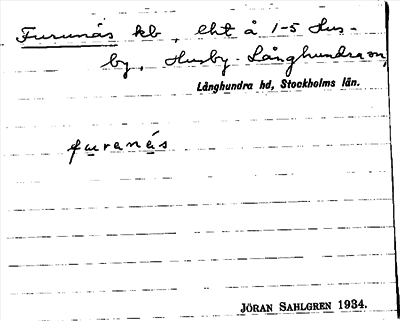 Furunäs kb, lht å 1-5 Hus-
by, Husby-Långhundra sn,
Långhundra hd, Stockholms län.
furanäs
JÖRAN SAHLGREN 1934.